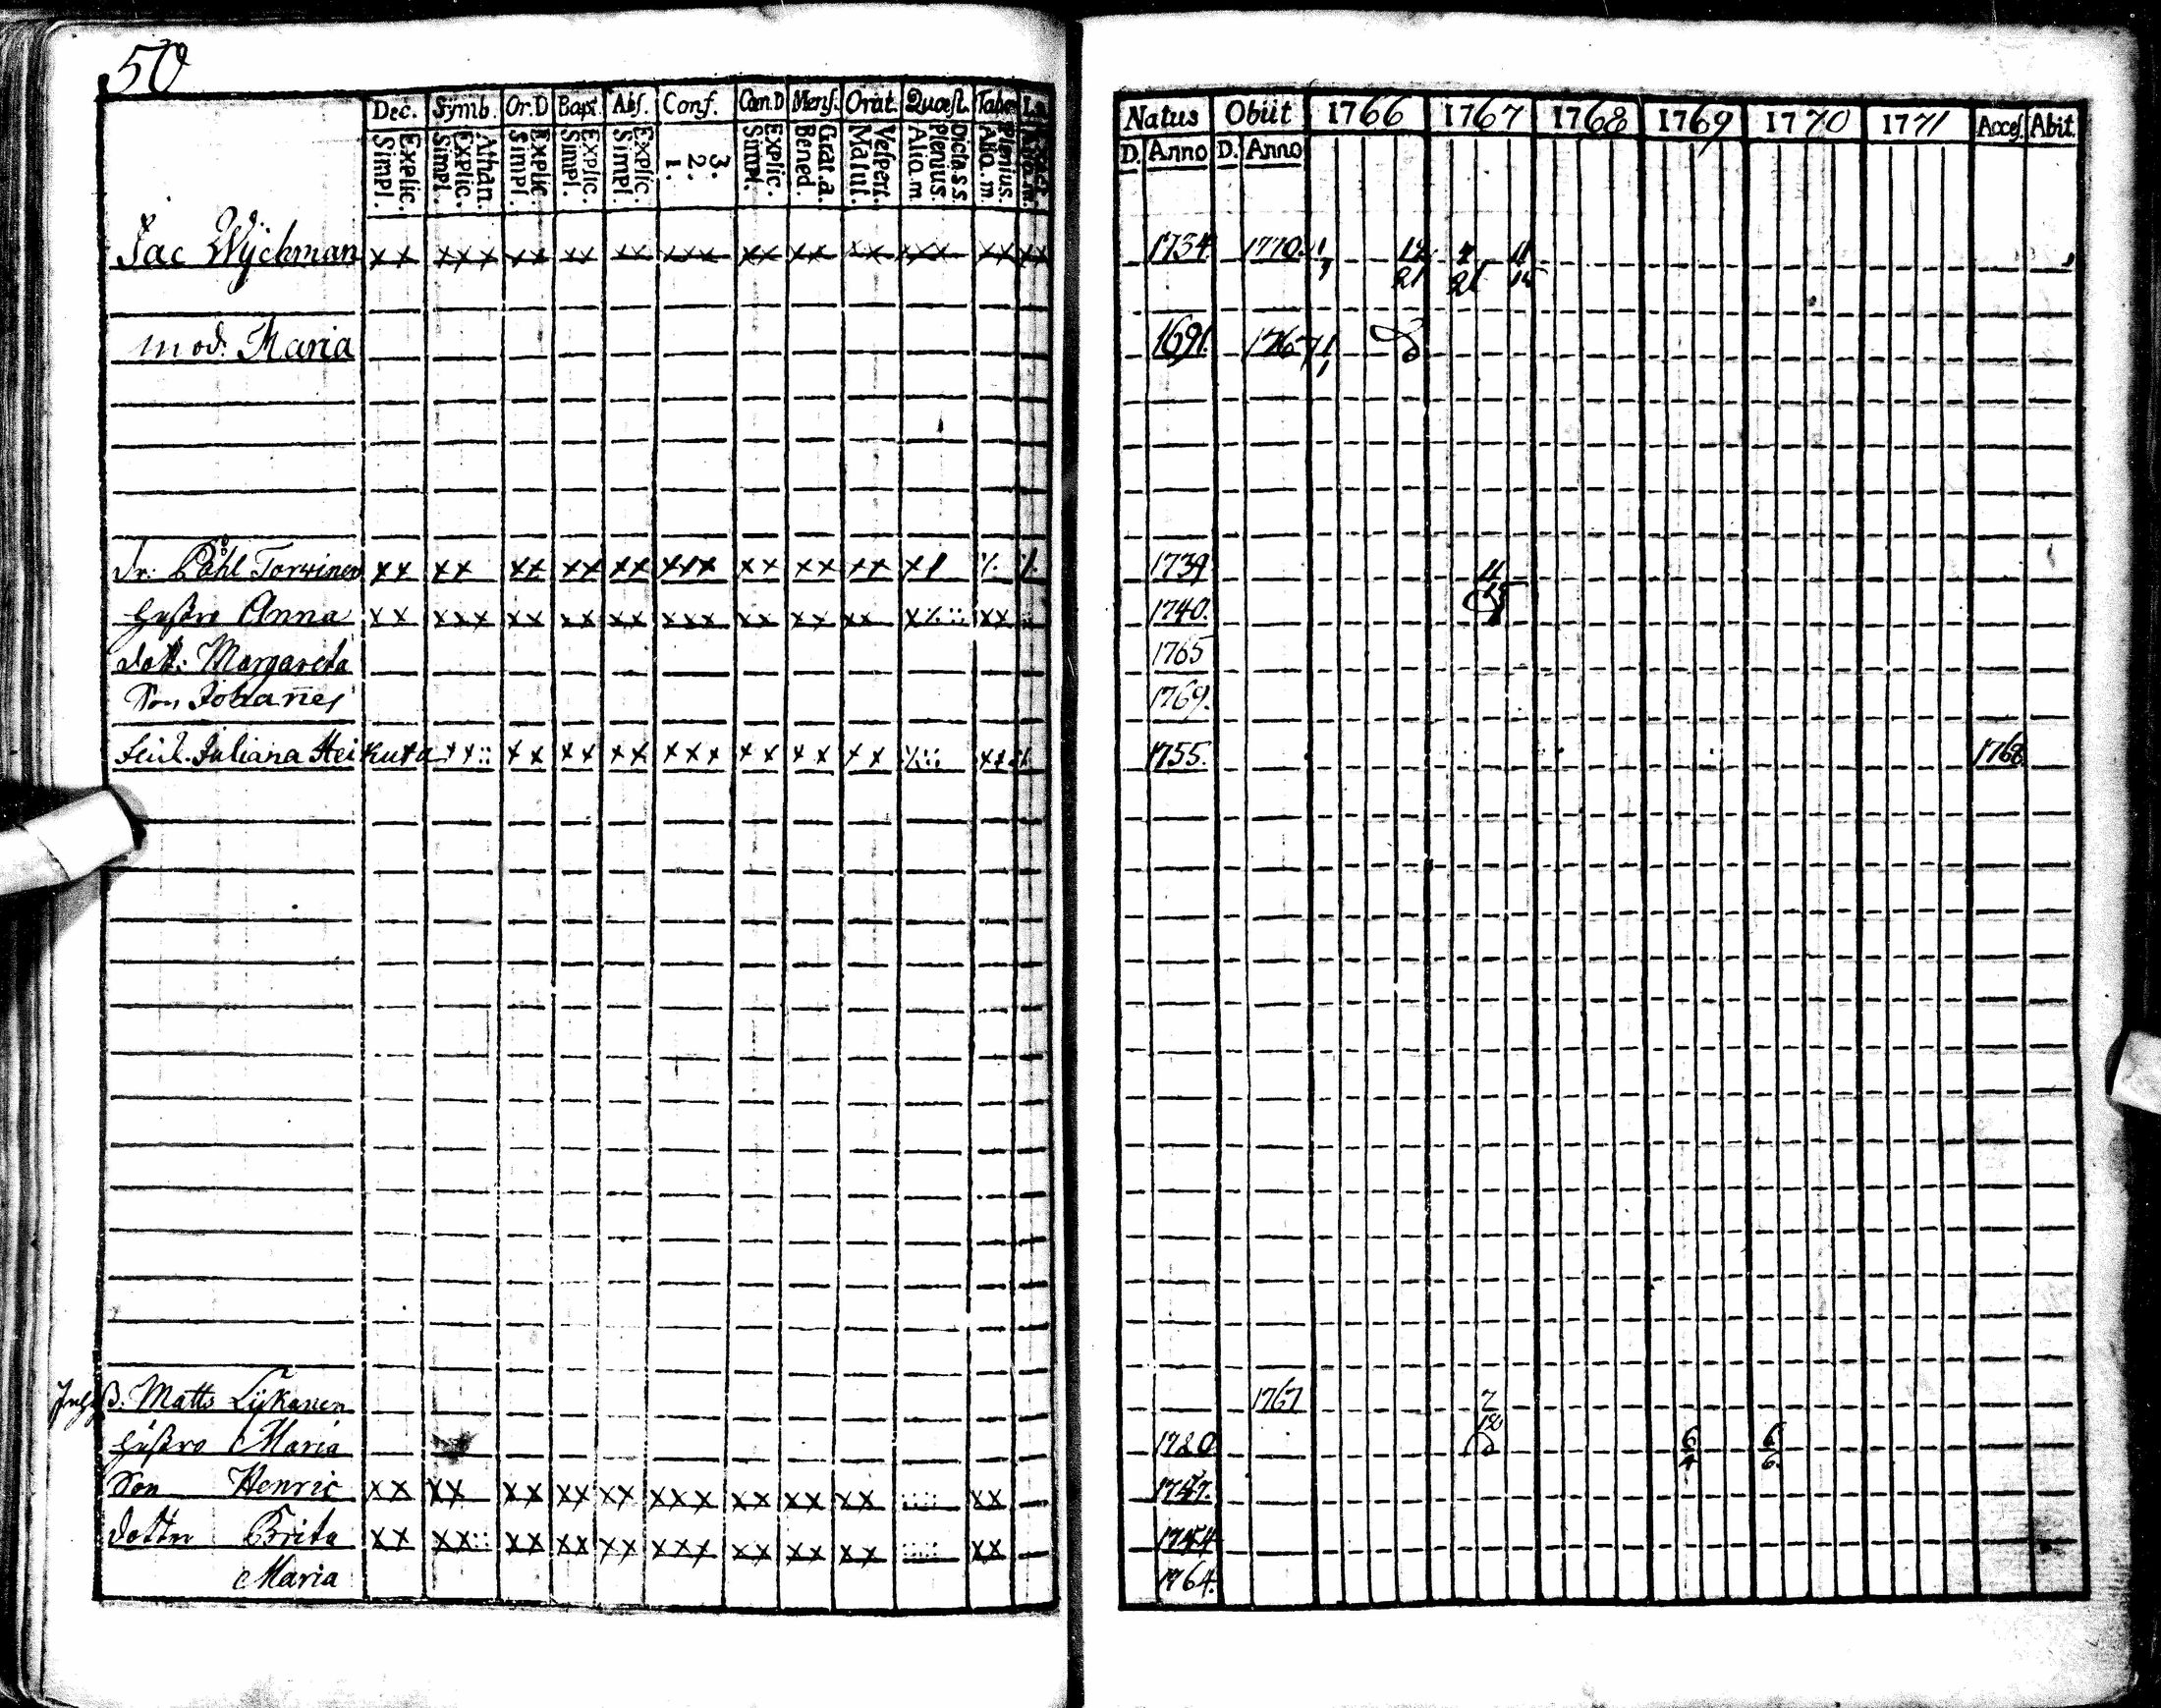 50
Dec. Symb. Or.D Bapt. Abs. Conf. Cœn.D Mens. Orat. Quæst. Tabe
Explic. Simpl. Athan. Explic. Simpl. Explic. Simpl. Explic. Simpl. Explic. Simpl. 3. 2. 1. Explic. Simpl. Grat.a. Bened. Vespert. Matut. Dicta.s.s. Plenius. Aliq.m Plenius. Aliq.m.
Natus Obiit 1766 1767 1768 1769 1770 1771 Access. Abit.
D. Anno D. Anno
Jac Wÿckman xx xxx xx xx xx xxx xx xx xx xxx xx xx 1734. 1770.
mod: Maria 1691. 1767
Dr: Påhl Torwinen xx xx xx xx xx xxx xx xx xx 1739
hustro Anna xx xxx xx xx xx xxx xx xx xx xx 1740.
dott: Margareta 1765
Son Johañes 1769.
Juliana Heikura xx xx xx xx xxx xx xx xx 1755. 1768.
B. Matts Lÿkanen 1767
hustro Maria 1720
Son Henric xx xx xx xx xx xxx xx xx xx xx 1747.
dottr Brita xx xx xx xx xx xxx xx xx xx xx
Maria 1764.